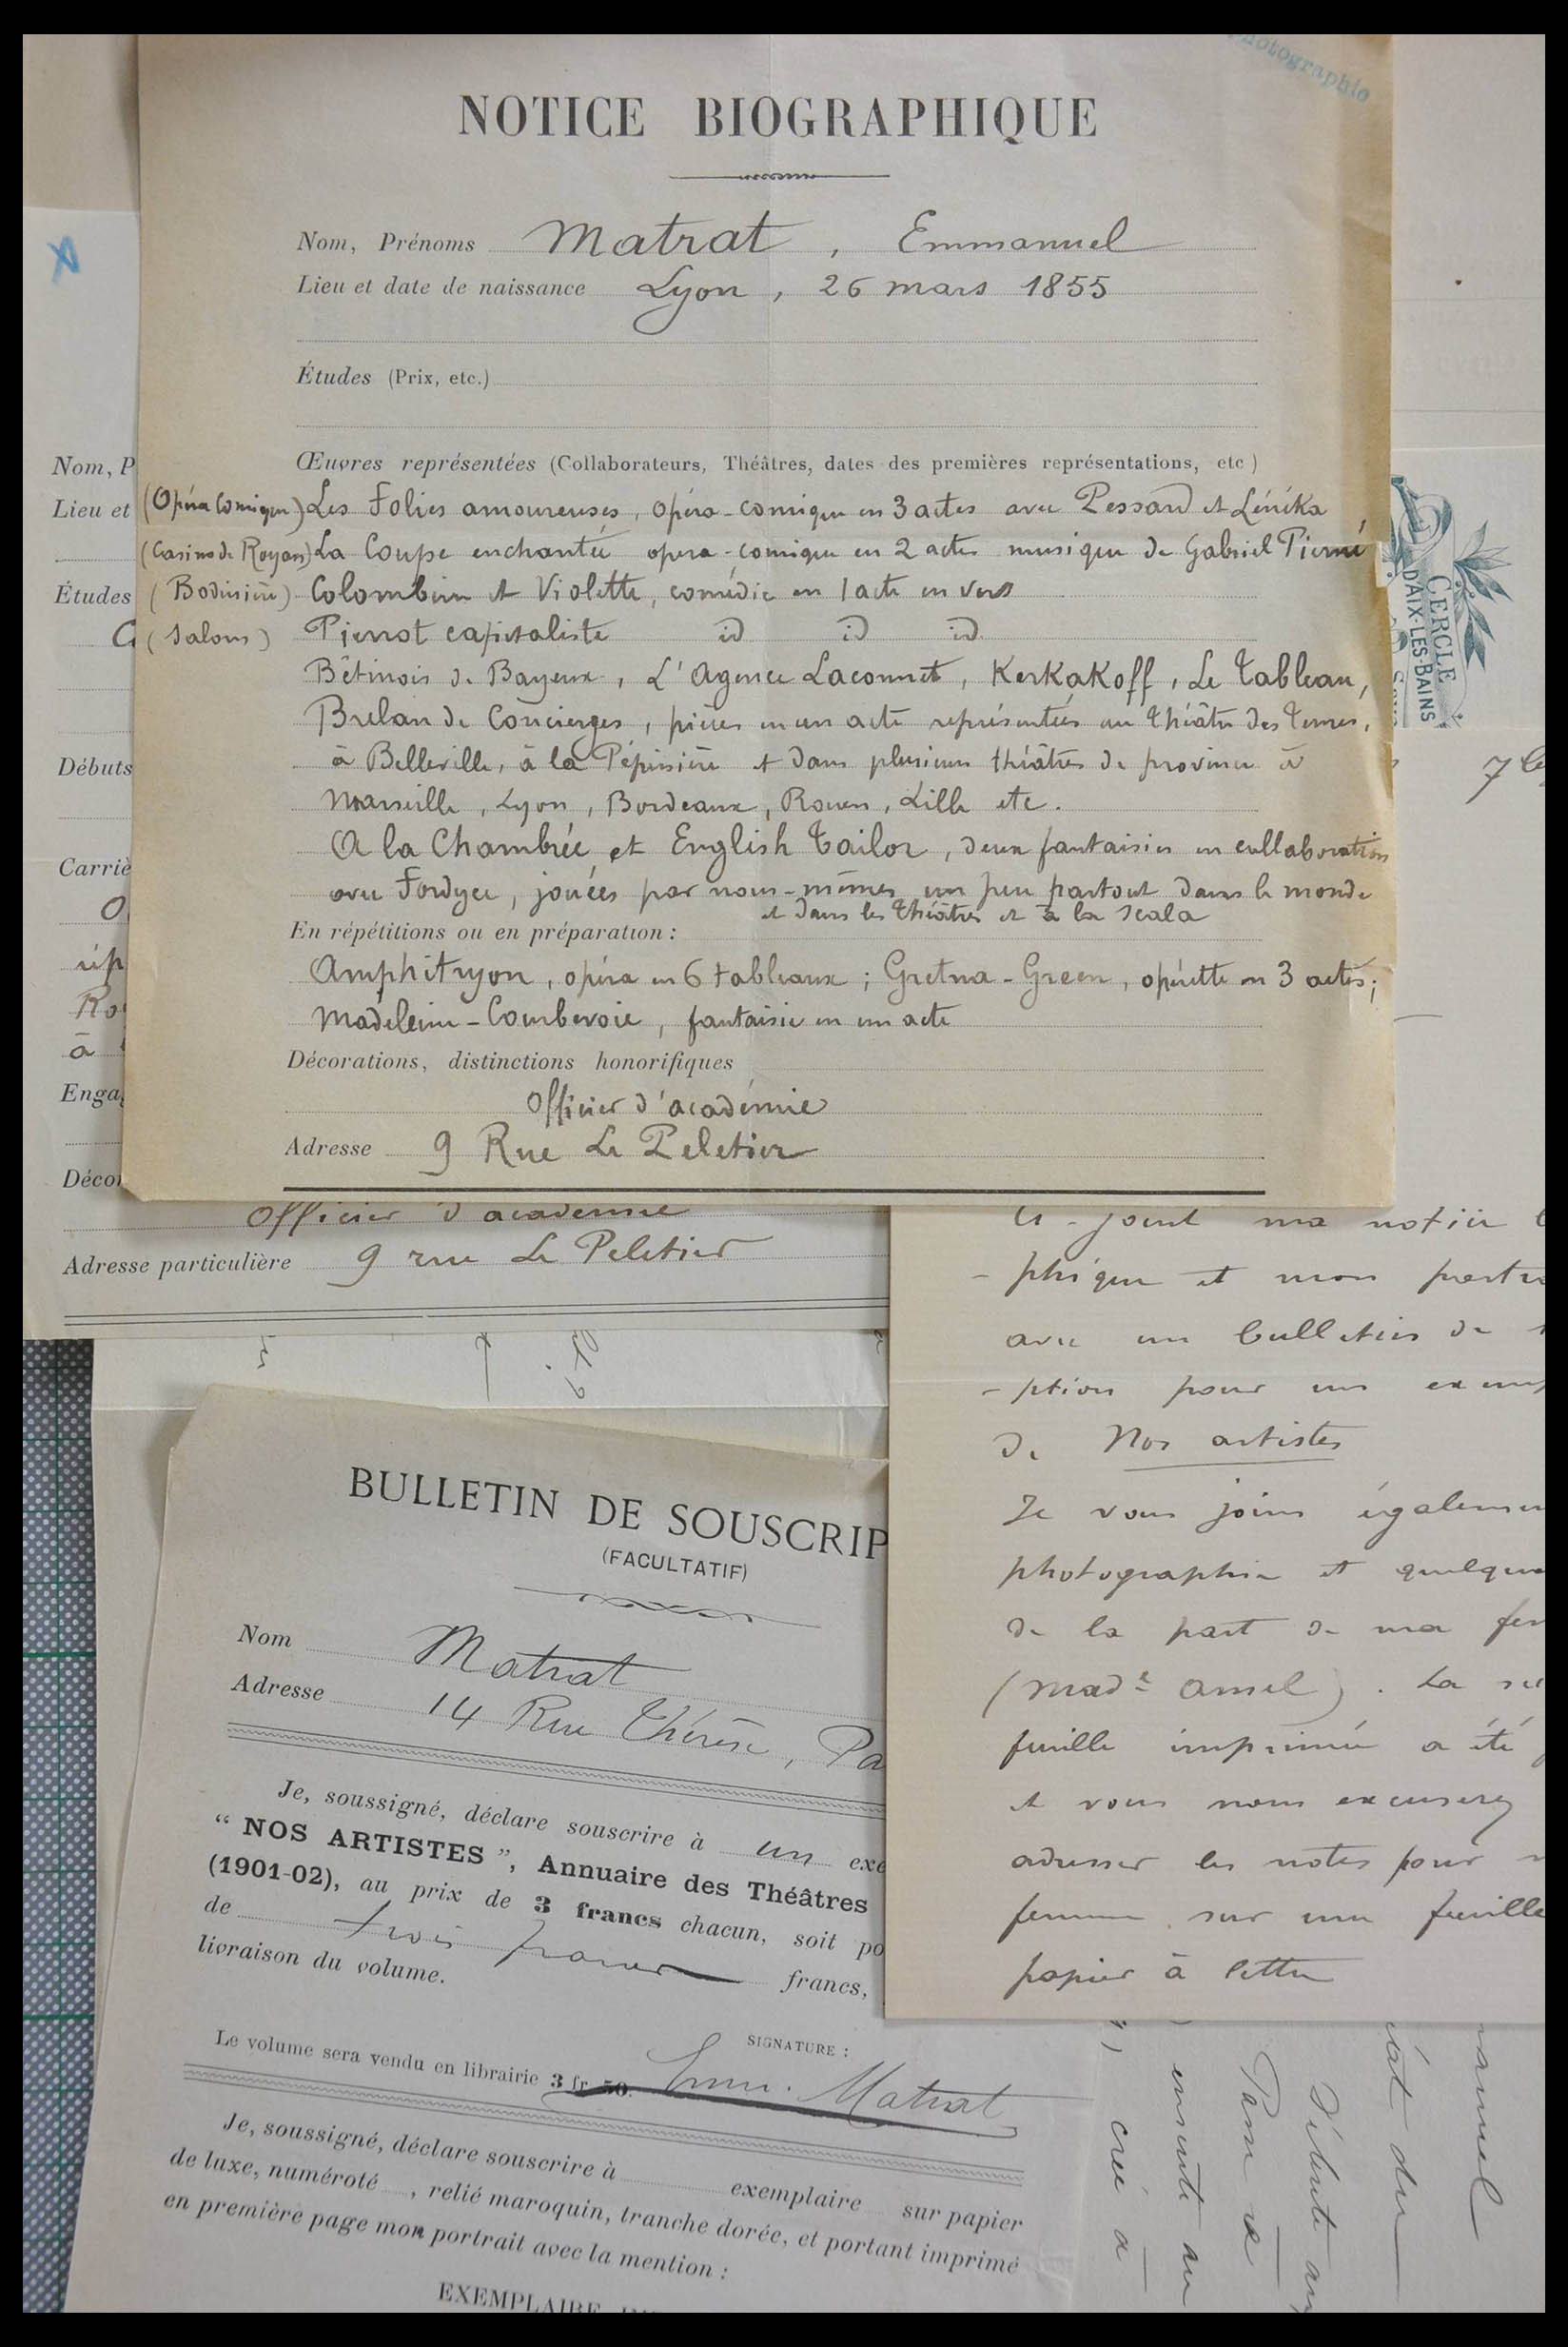 Photographie
NOTICE BIOGRAPHIQUE
Nom, Prénoms Matrat, Emmanuel
Lieu et date de naissance Lyon, 26 mars 1855
Études (Prix, etc.)
Œuvres représentées (Collaborateurs, Théâtres, dates des premières représentations, etc )
(Opéra Comique) Les Folies amoureuses, opéra-comique en 3 actes avec Pessard et Lénéka
(Casino de Royan) La Coupe enchantée opera-comique en 2 actes musique de Gabriel Pierné
(Bodinière) Colombine et Violette, comédie en 1 acte en vers
(Salons) Pierrot capitaliste id id id.
Bêtinois de Bayeux, L'Agence Laconnet, Kerkakoff, Le Tableau,
Brelan de Concierges, pièces en un acte représentées au théâtre des Ternes,
à Belleville, à la Pépinière et dans plusieurs théâtres de province à
Marseille, Lyon, Bordeaux, Rouen, Lille etc.
A la Chambrée et English Tailor, deux fantaisies en collaboration
avec Fordyce, jouées par nous-mêmes un peu partout dans le monde
et dans les théâtres et à la Scala
En répétitions ou en préparation :
Amphitryon, opéra en 6 tableaux ; Gretna-Green, opérette en 3 actes ;
Madeleine-Courbevoie, fantaisie en un acte
Décorations, distinctions honorifiques
Officier d'académie
Adresse 9 Rue Le Peletier
Nom, P
Lieu et
Études
Débuts
Carriè
rép
Ro
à
Enga
Décor
Officier d'académie
Adresse particulière 9 rue Le Peletier
CERCLE
D'AIX-LES-BAINS
7
Ci-joint ma notice
-phique et mon portr
avec un bulletin de
-ption pour un exem
de Nos artistes
Je vous joins égalemen
photographie et quelque
de la part de ma fem
(Made Amel). La
feuille imprimée a été
et vous nous excuserez
adresser les notes pour
femme sur une feuille
papier à lettre
BULLETIN DE SOUSCRIP
(FACULTATIF)
Nom Matrat
Adresse 14 Rue Thérèse, Pa
Je, soussigné, déclare souscrire à un exe
“ NOS ARTISTES ”, Annuaire des Théâtres
(1901-02), au prix de 3 francs chacun, soit po
de trois francs francs,
livraison du volume.
SIGNATURE :
Le volume sera vendu en librairie 3 fr. 50. Emm. Matrat
Je, soussigné, déclare souscrire à exemplaire sur papier
de luxe, numéroté , relié maroquin, tranche dorée, et portant imprimé
en première page mon portrait avec la mention :
EXEMPLAIRE
créé à
ensuite au
Débute au